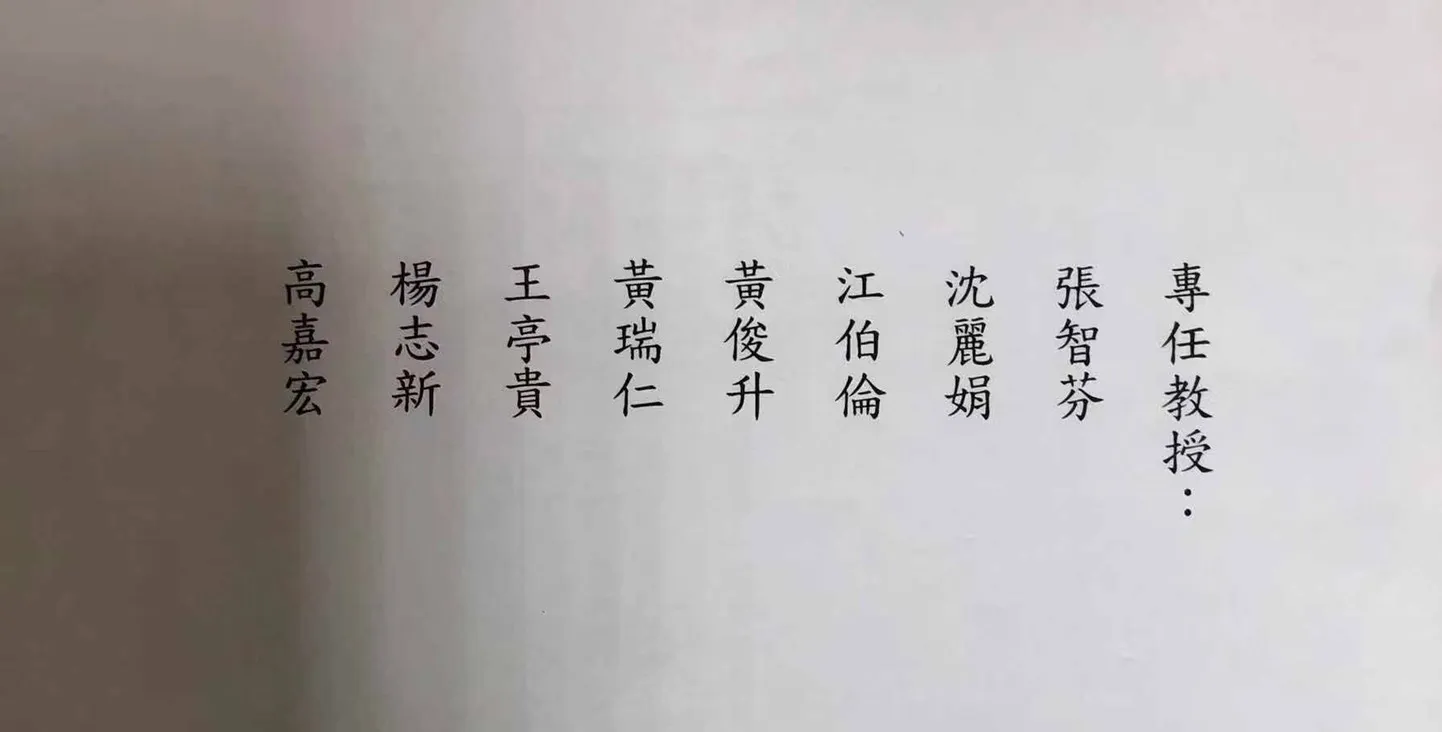 專任教授：
張智芬
沈麗娟
江伯倫
黃俊升
黃瑞仁
王亭貴
楊志新
高嘉宏